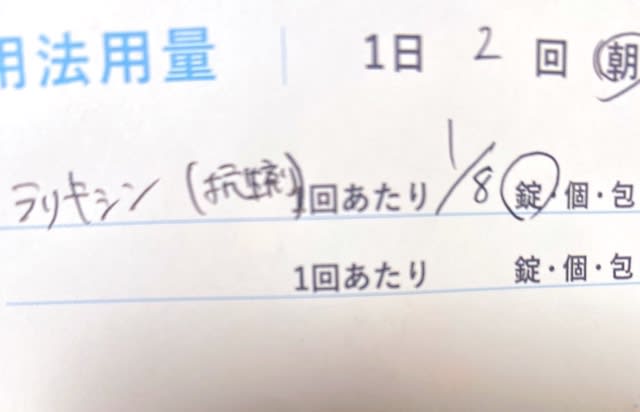 用法用量 1日 2 回 朝
ラリキシン (抗生剤) 1回あたり 1/8 錠・個・包
1回あたり 錠・個・包